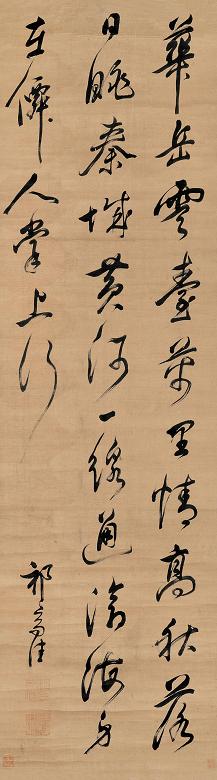 華岳雲臺萬里情高秋落
日眺秦城黃河一線通滄海身
在僊人掌上行
祁豸佳